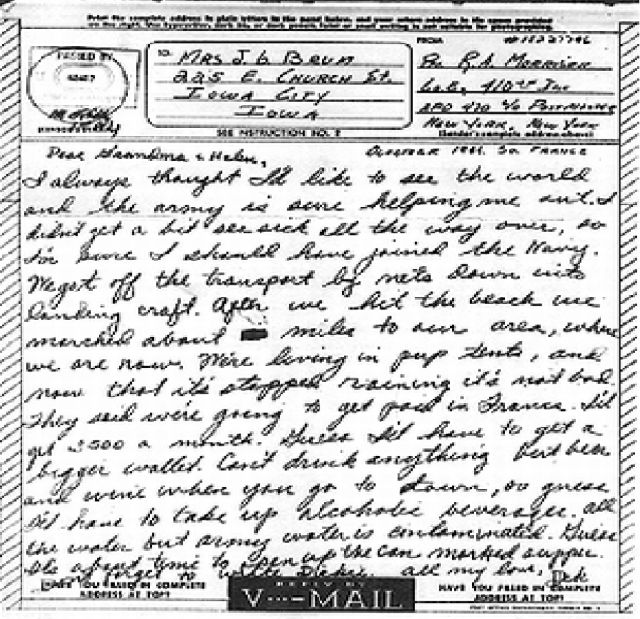 Print the complete address in plain letters in the panel below, and your return address in the space provided
on the right. Use typewriter, dark ink, or dark pencil. Faint or small writing is not suitable for photographing.
PASSED BY
TO:
MRS J. G BRUM
225 E. CHURCH ST.
IOWA CITY
IOWA
SEE INSTRUCTION NO. 2
FROM
Co C, 410th Inf
APO 470 c/o POSTMASTER
NEW YORK, NEW YORK
(Sender's complete address above)
Dear Grandma & Helen,
OCTOBER So. FRANCE
I always thought I'd like to see the world
and the army is sure helping me out. I
didn't get a bit sea sick all the way over, so
I'm sure I should have joined the Navy.
We got off the transport by nets down into
landing craft. After we hit the beach we
marched about miles to our area, where
we are now. We're living in pup tents, and
now that it's stopped raining it's not bad.
They said we're going to get paid in France. I'll
get 2500 a month. Guess I'll have to get a
bigger wallet. Can't drink anything but beer
and wine when you go to town, so guess
I'll have to take up alcoholic beverages. All
the water but army water is contaminated. Guess
it's about time to open up the can marked supper.
all my love, Dick
HAVE YOU FILLED IN COMPLETE
ADDRESS AT TOP?
REPLY BY
V···—MAIL
HAVE YOU FILLED IN COMPLETE
ADDRESS AT TOP?